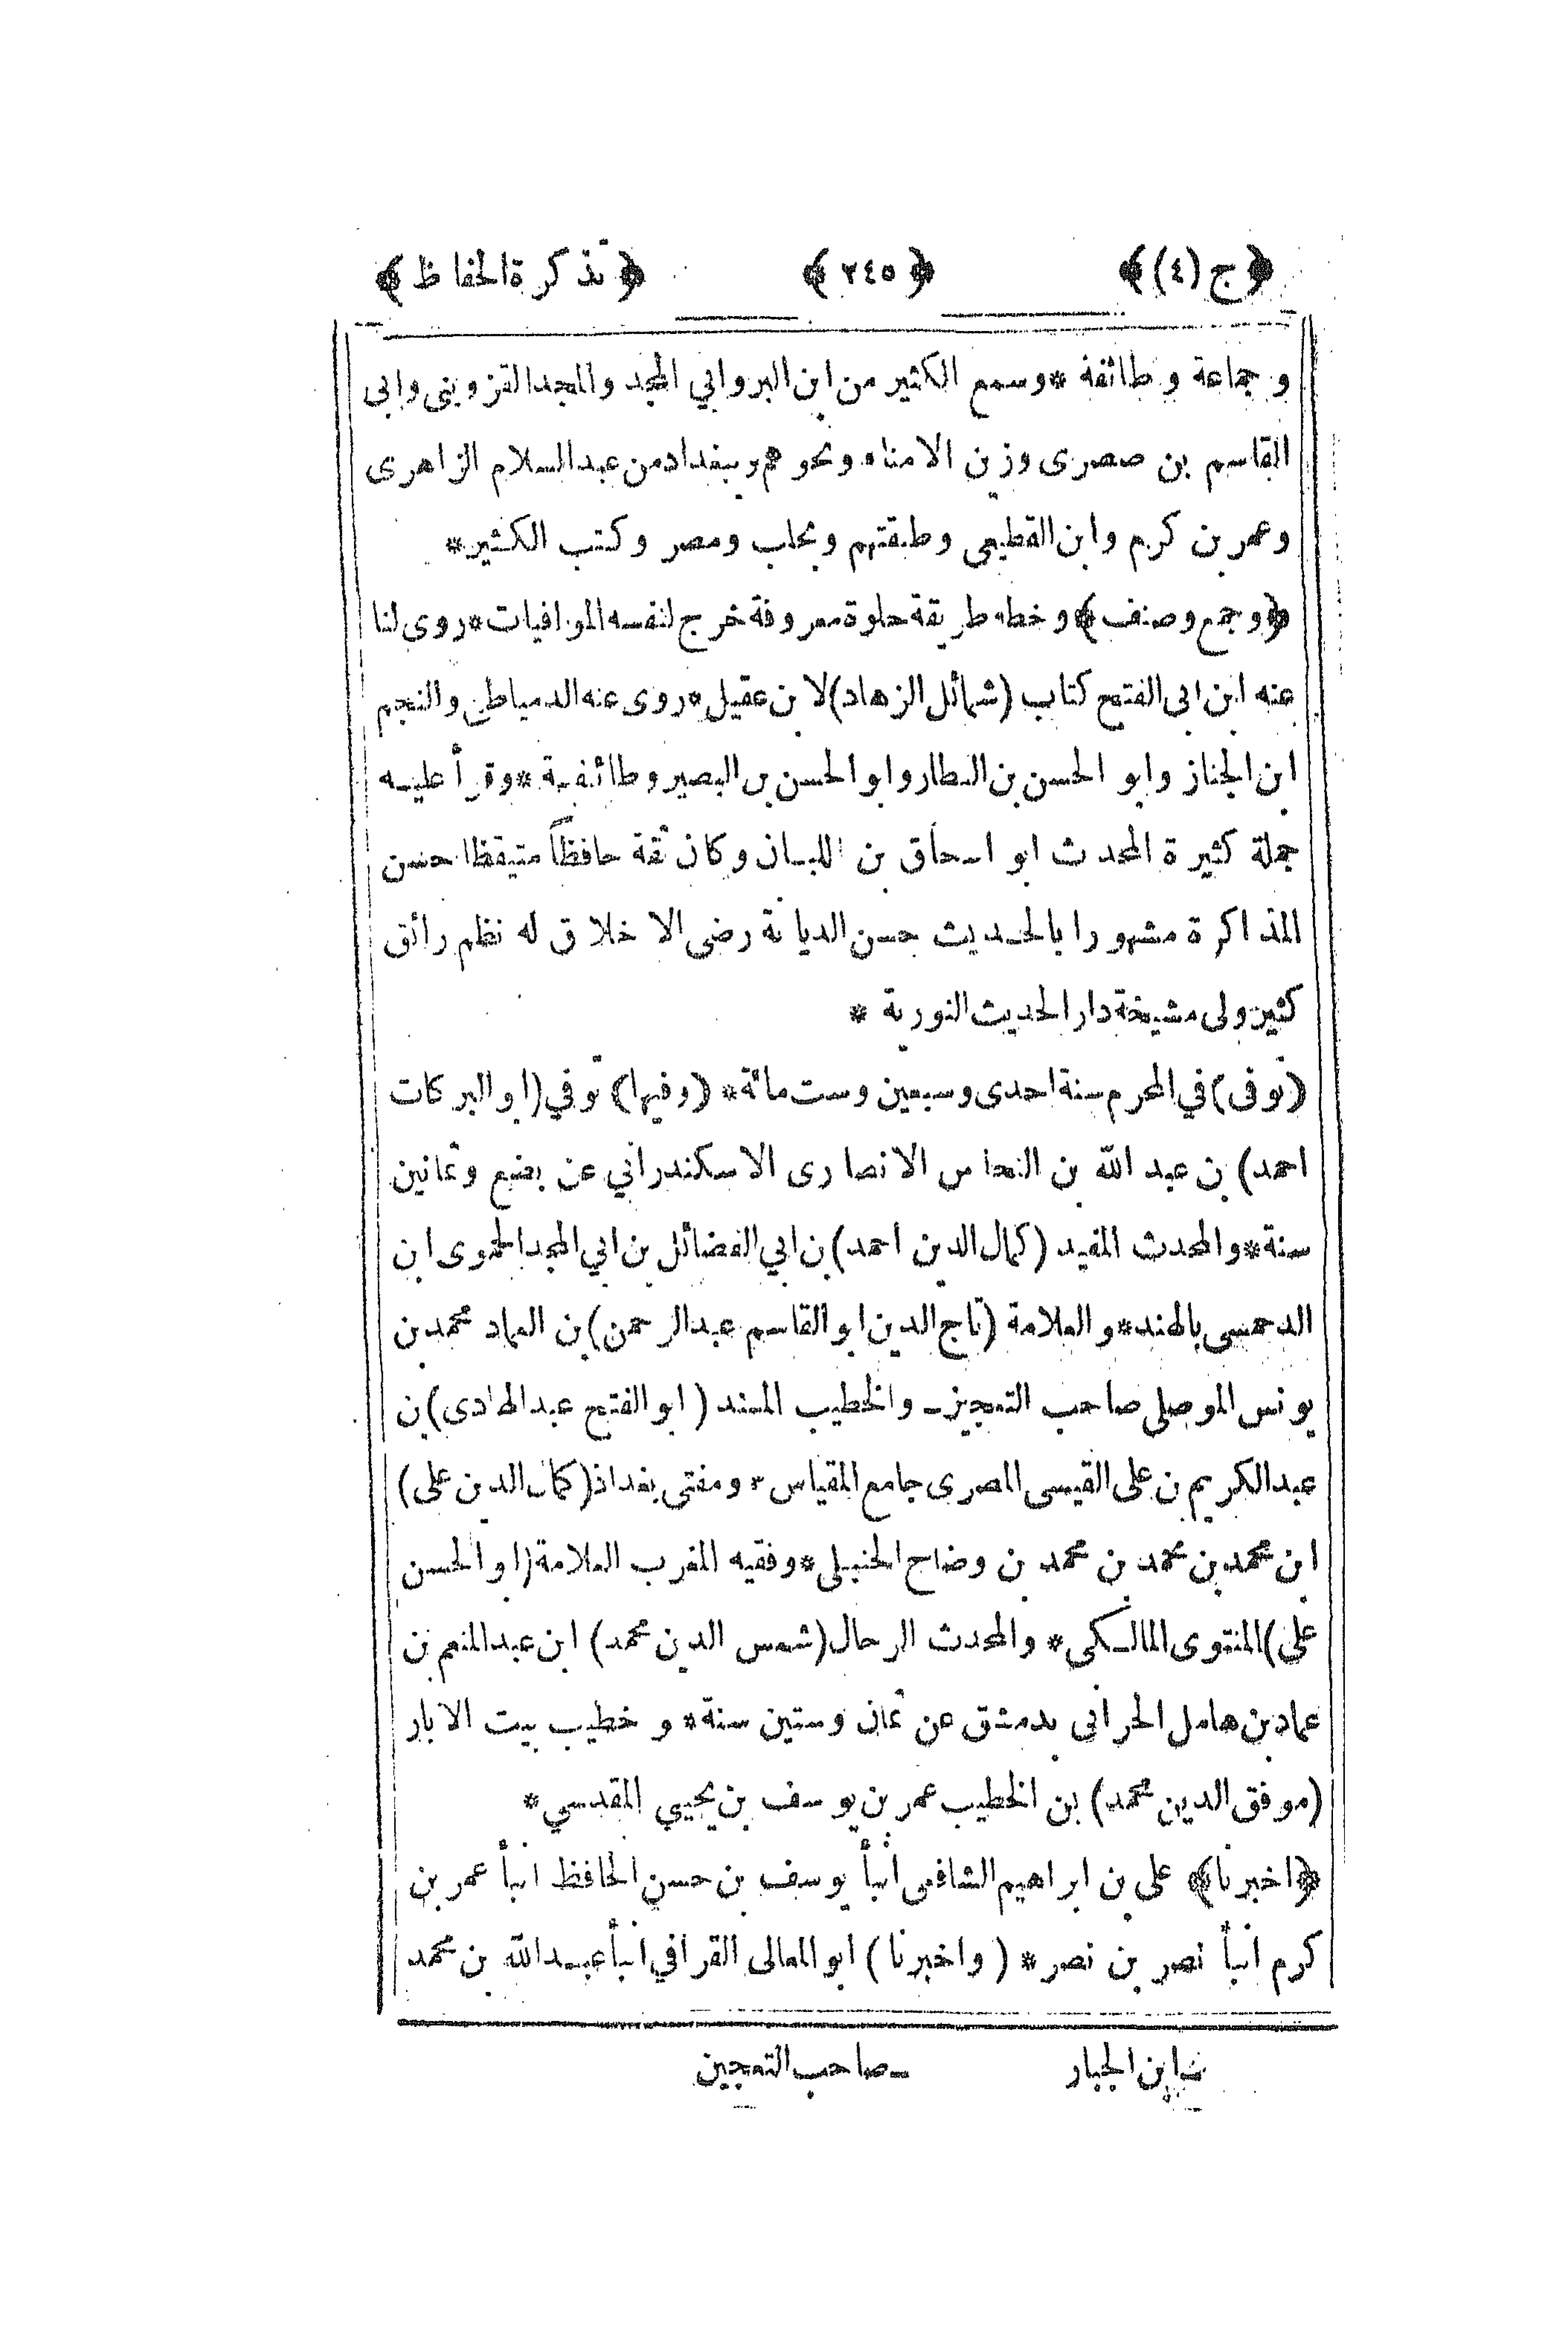 ﴿ج(٤)﴾ ﴿٢٤٥﴾ ﴿تذكرة الحفاظ﴾
و جماعة و طائفة *وسمع الكثير من ابن البر وابي المجد والمجد القزويني وابى
القاسم بن صصرى وزين الامناء ونحوهم وببغداد من عبد السلام الزاهرى
وعمر بن كرم وابن القطيعى وطبقتهم وبحلب ومصر وكتب الكثير*
﴿وجمع وصنف﴾ وخطه طريقة حلوة معروفة خرج لنفسه الموافيات*روى لنا
عنه ابن ابى الفتح كتاب (شمائل الزهاد)لابن عقيل*روى عنه الدمياطى والنجم
ابن الجناز وابو الحسن بن العطار وابو الحسن بن البصير وطائفة *وقرأ عليه
جملة كثيرة المحدث ابو اسحاق بن اللبان وكان ثقة حافظاً متيقظا حسن
المذاكرة مشهورا بالحديث حسن الديانة رضى الاخلاق له نظم رائق
كثير ولى مشيخة دار الحديث النورية *
(توفى) في المحرم سنة احدى وسبعين وست مائة* (وفيها) توفي (ابو البركات
احمد) بن عبد الله بن النحاس الانصارى الاسكندراني عن بضع وثمانين
سنة*والمحدث المفيد (كمال الدين احمد) بن ابي الفضائل بن ابي المجد الحموى ابن
الدحمسى بالهند*و العلامة (تاج الدين ابو القاسم عبد الرحمن) بن العماد محمد بن
يونس الموصلى صاحب التعجيزـ والخطيب المسند ( ابو الفتح عبد الهادى) بن
عبد الكريم بن على القيسى المصرى جامع المقياس* ومفتى بغداد (كمال الدين على)
ابن محمد بن محمد بن محمد بن وضاح الحنبلى*وفقيه المغرب العلامة (ابو الحسن
على) المتوى المالكى* والمحدث الرحال (شمس الدين محمد) ابن عبد المنعم بن
عماد بن هامل الحرانى بدمشق عن ثمان وستين سنة* و خطيب بيت الابار
(موفق الدين محمد) بن الخطيب عمر بن يوسف بن يحيى المقدسي*
﴿اخبرنا﴾ على بن ابراهيم الشافعى انبأ يوسف بن حسن الحافظ انبأ عمر بن
كرم انبأ نصر بن نصر* ( واخبرنا ) ابو المعالى القرافي انبأ عبد الله بن محمد
ابن الجبار ـ صاحب التعجيز